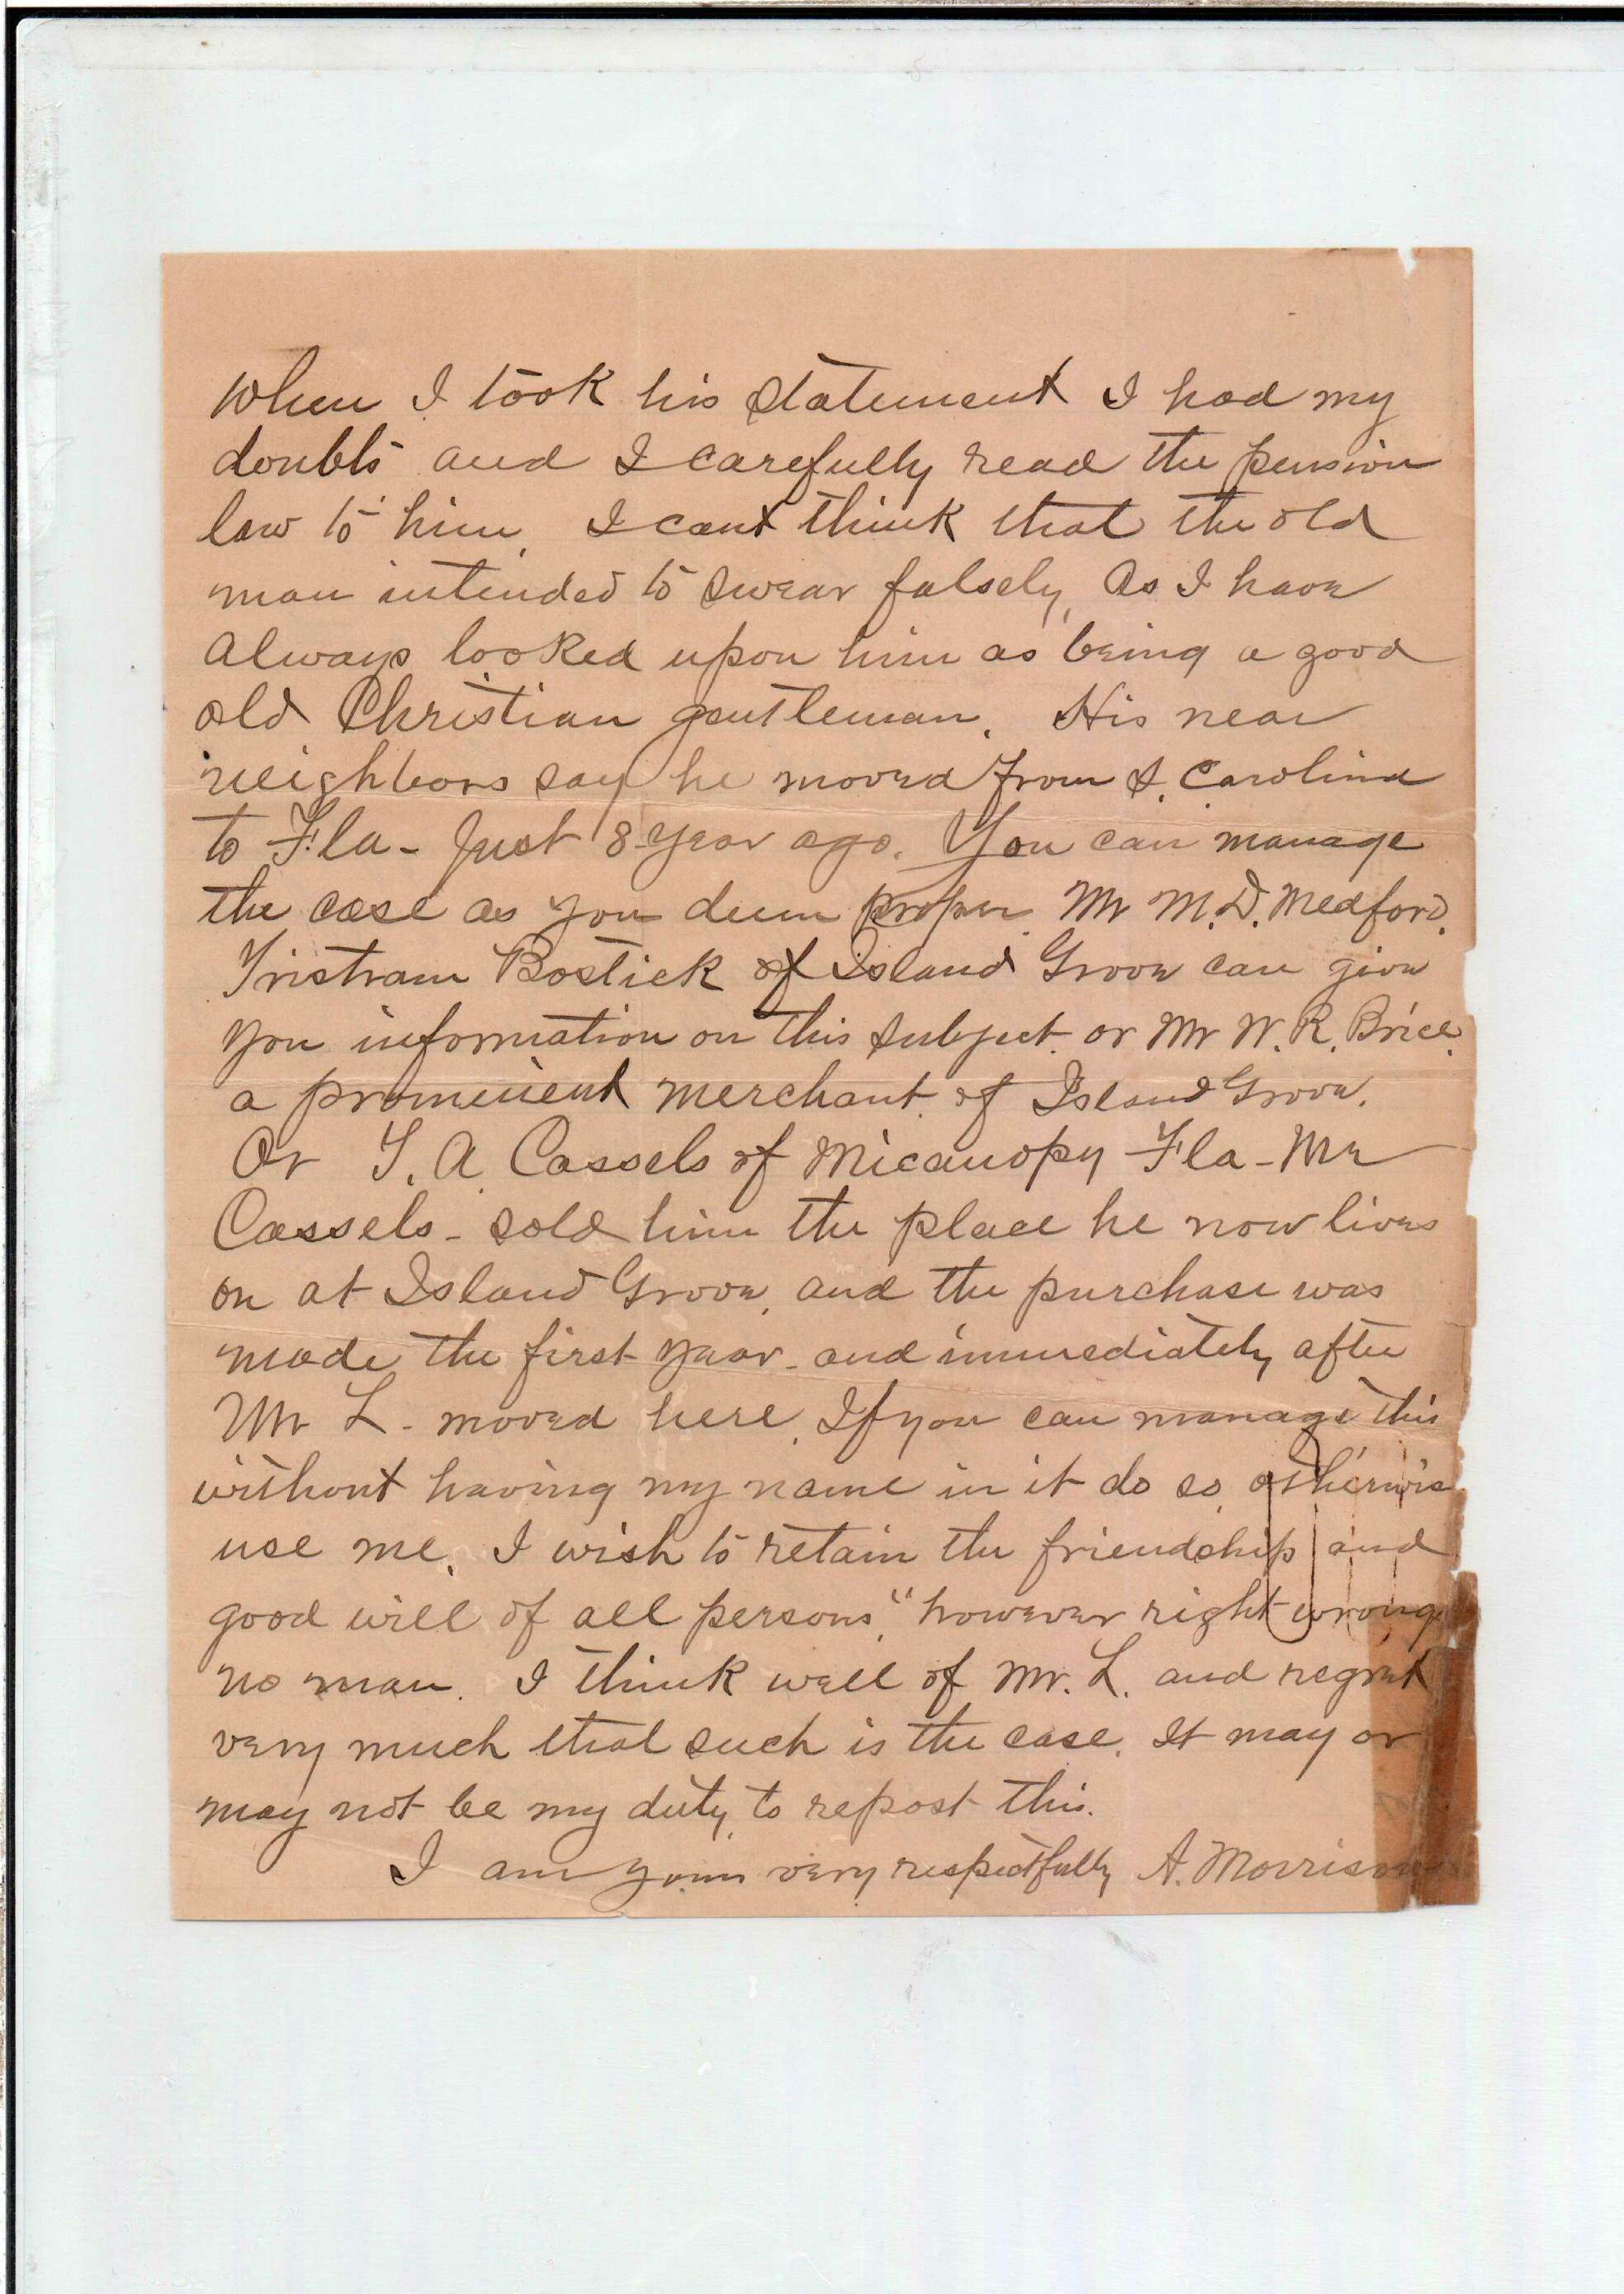 When I took his statement I had my
doubts and I carefully read the pension
law to him. I cant think that the old
man intended to swear falsely, As I have
always looked upon him as being a good
old Christian gentleman. His near
neighbors say he moved from S. Carolina
to Fla - Just 8 year ago. You can manage
the case as you deem proper. Mr M. D. Medford.
Tristram Bostick of Island Grove can give
you information on this subject. or Mr W. R. Brice.
a prominent merchant of Island Grove.
Or T. A. Cassels of Micanopy Fla - Mr
Cassels - sold him the place he now lives
on at Island Grove, and the purchase was
made the first year - and immediately after
Mr L - moved here. If you can manage this
without having my name in it do so, otherwise
use me. I wish to retain the friendship and
good will of all persons," however right wrongs
no man. I think well of Mr. L. and regret
very much that such is the case. It may or
may not be my duty to repost this.
I am yours very respectfully A. Morrison